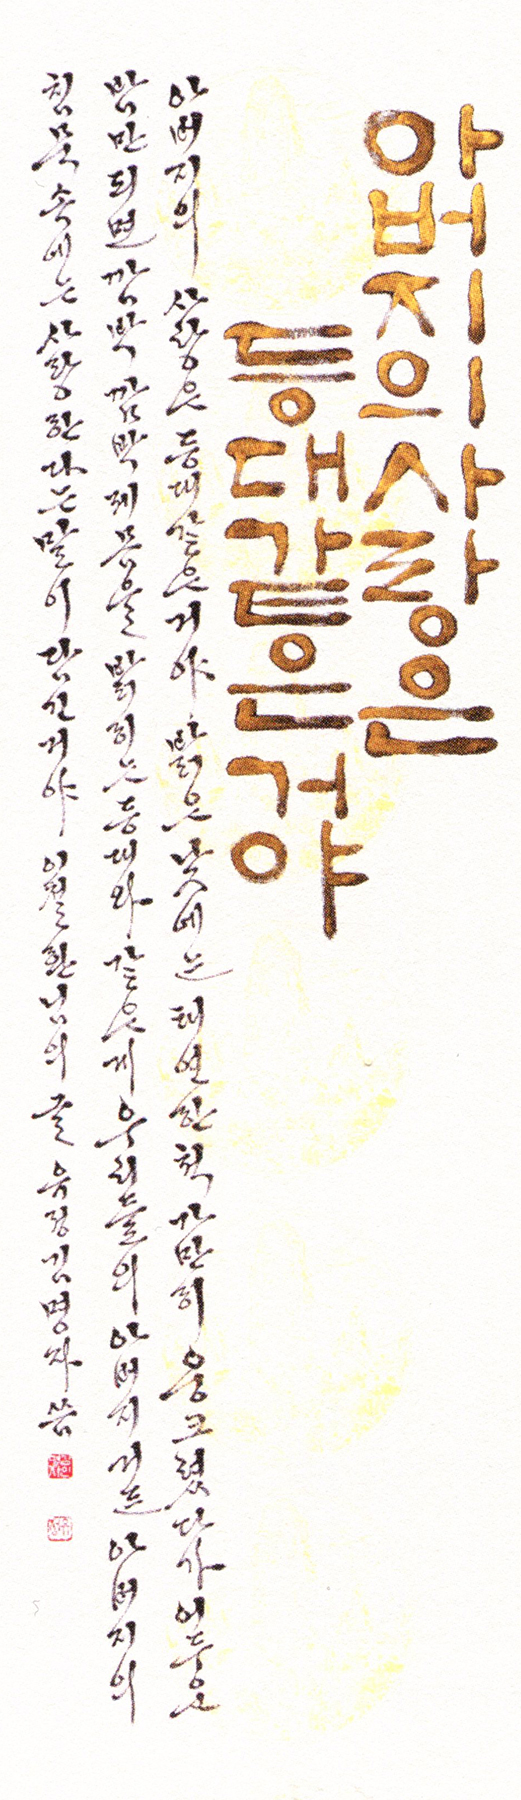 아버지의사랑은
등대같은거야
아버지의 사랑은 등대같은거야 밝은 낮에는 태연한 척 가만히 웅크렸다가 어두운
밤만 되면 깜박 깜박 제 몸을 밝히는 등대와 같은 게 우리들의 아버지거든 아버지의
침묵 속에는 사랑한다는 말이 담긴거야 이철환님의 글 유정 김명자 씀